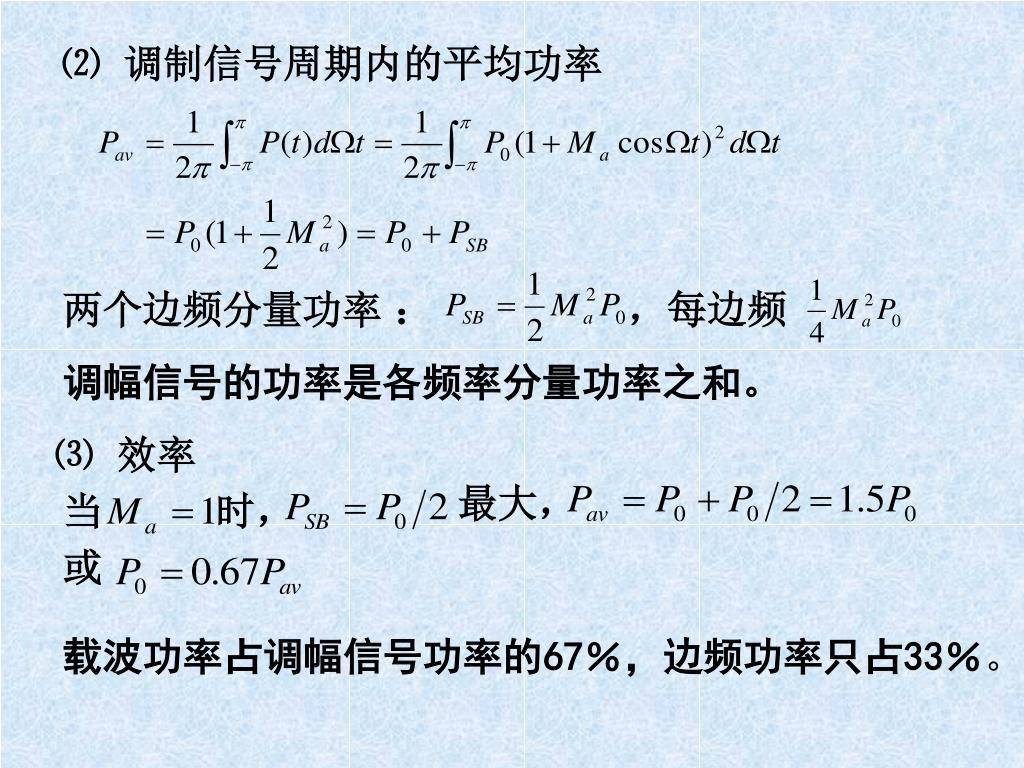 ⑵ 调制信号周期内的平均功率
P_{av} = \frac{1}{2\pi} \int_{-\pi}^{\pi} P(t)dΩt = \frac{1}{2\pi} \int_{-\pi}^{\pi} P_0(1+M_a cosΩt)^2 dΩt
= P_0(1+\frac{1}{2}M_a^2) = P_0 + P_{SB}
两个边频分量功率 : P_{SB} = \frac{1}{2}M_a^2 P_0, 每边频 \frac{1}{4}M_a^2 P_0
调幅信号的功率是各频率分量功率之和。
⑶ 效率
当 M_a = 1时, P_{SB} = P_0/2 最大, P_{av} = P_0 + P_0/2 = 1.5P_0
或 P_0 = 0.67P_{av}
载波功率占调幅信号功率的67%, 边频功率只占33%。